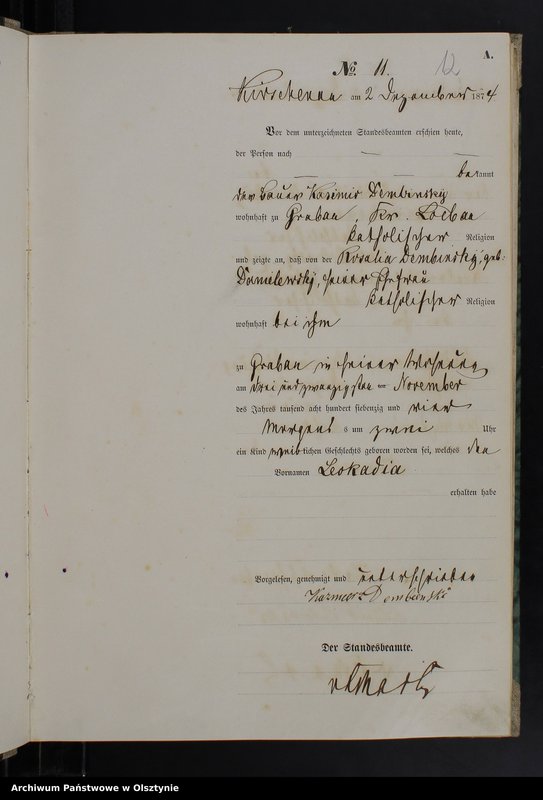 A.
No. 11.
12
am 2 Dezember 1874
Vor dem unterzeichneten Standesbeamten erschien heute,
der Person nach — —
— — bekannt
der Bauer Kasimir Dembinsky
wohnhaft zu Grabau, Kr. Loebau
katholischer Religion
und zeigte an, daß von der Rosalia Dembinsky, geb.
Danielewsky, seiner Ehefrau
katholischer Religion
wohnhaft bei ihm
zu Grabau in seiner Wohnung
am drei und zwanzigsten November
des Jahres tausend acht hundert siebenzig und vier
Morgens um zwei Uhr
ein Kind weiblichen Geschlechts geboren worden sei, welches den
Vornamen Leokadia
erhalten habe
Vorgelesen, genehmigt und unterschrieben
Dembinski
Der Standesbeamte.
Archiwum Państwowe w Olsztynie